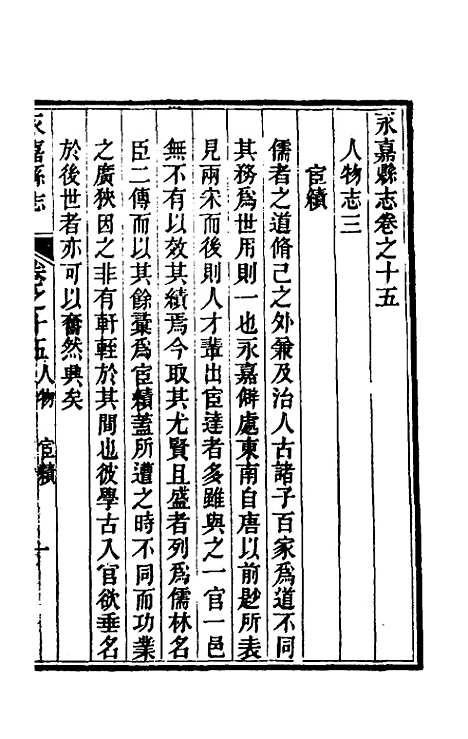 永嘉縣志卷之十五
人物志三
宦績
儒者之道脩己之外兼及治人古諸子百家爲道不同
其務爲世用則一也永嘉僻處東南自唐以前尟所表
見兩宋而後則人才輩出宦達者多雖與之一官一邑
無不有以效其績焉今取其尤賢且盛者列爲儒林名
臣二傳而以其餘彙爲宦績蓋所遭之時不同而功業
之廣狹因之非有軒輊於其間也彼學古入官欲垂名
於後世者亦可以奮然興矣
永嘉縣志
卷之十五人物 宦績 一